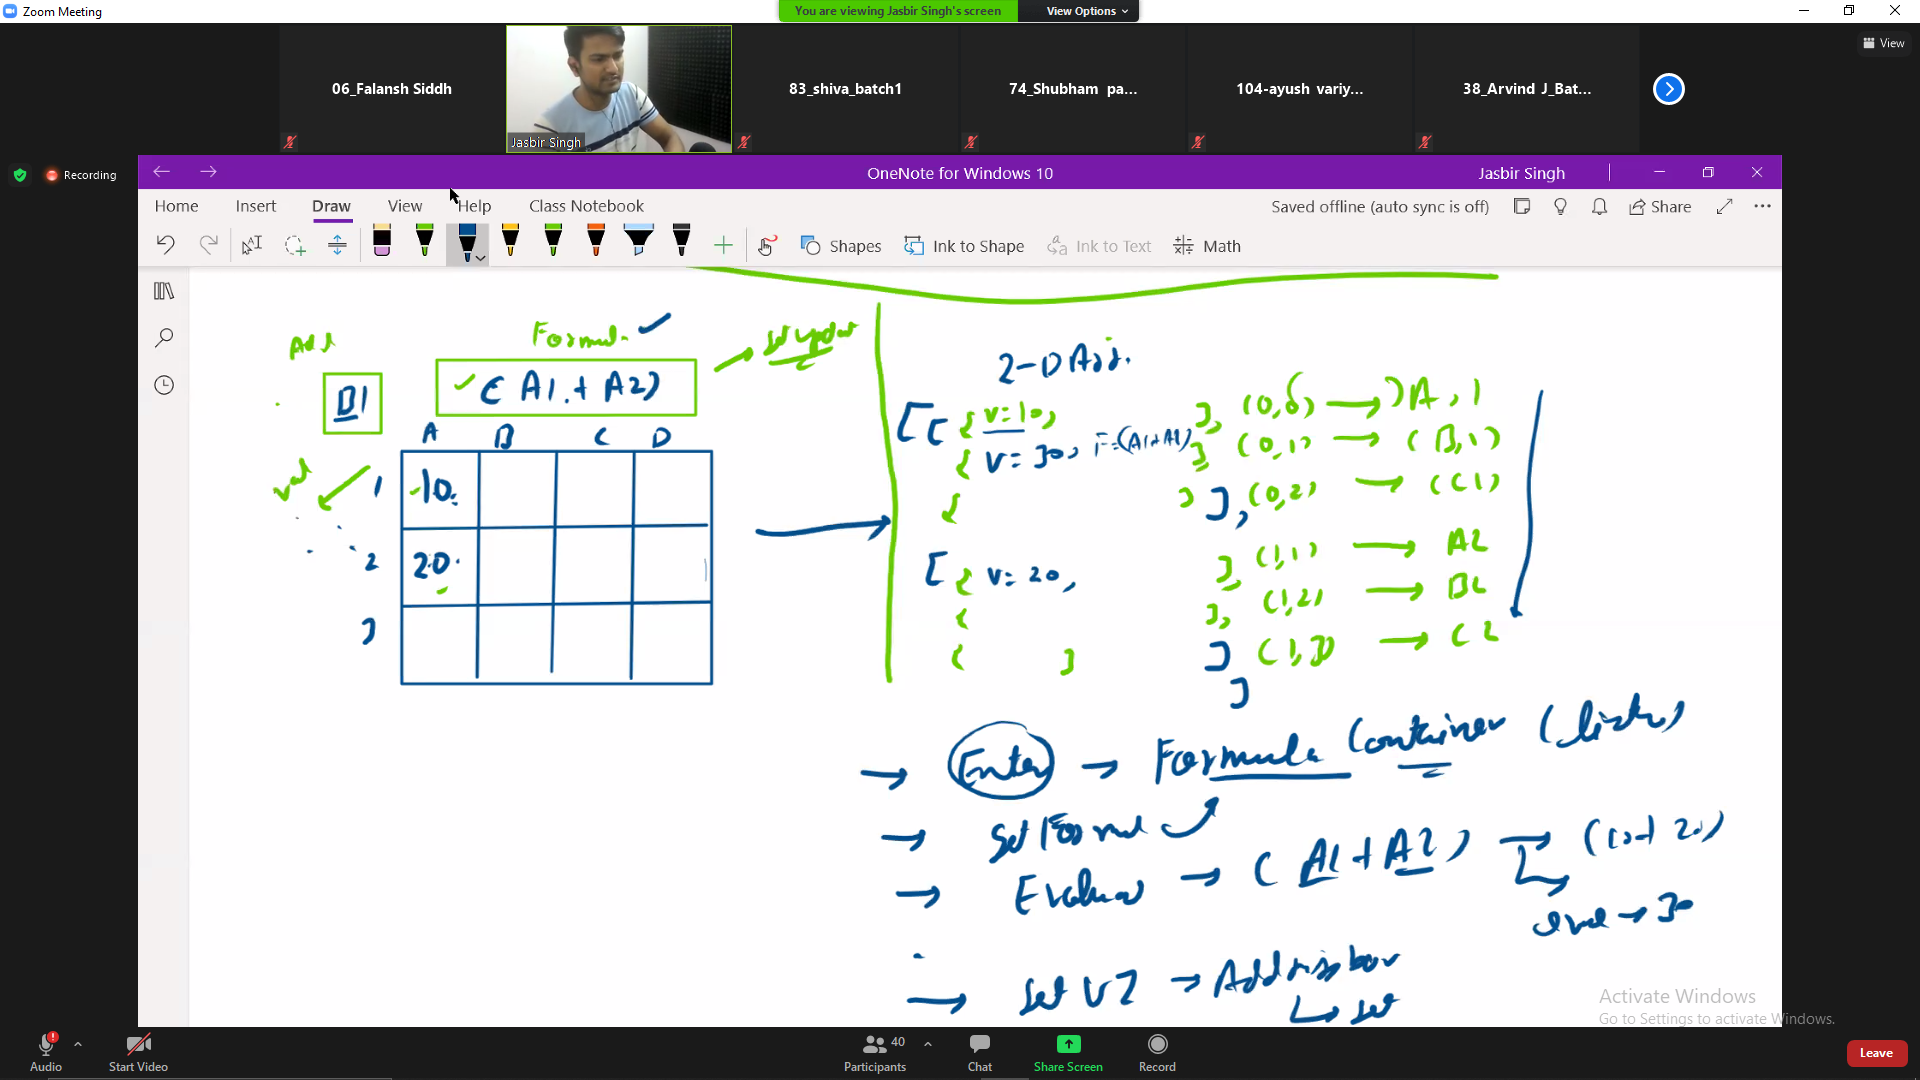 Zoom Meeting
You are viewing Jasbir Singh's screen
View Options
View
06_Falansh Siddh
Jasbir Singh
83_shiva_batch1
74_Shubham pa...
104-ayush variy...
38_Arvind J_Bat...
Recording
OneNote for Windows 10
Jasbir Singh
Home Insert Draw View Help Class Notebook
Saved offline (auto sync is off)
Share
Shapes
Ink to Shape
Ink to Text
Math
B1
(A1 + A2)
A B C D
1 10
2 20
3
2-D Arr.
[[ { v=10, }, (0,0) → A,1
{ v=30, F=(A1+A2) } (0,1) → (B,1)
{ } ], (0,2) → (C1)
[ { v=20, }, (1,1) → A2
{ }, (1,2) → B2
{ } ] (1,3) → C2
]
→ Enter → Formula Container (listen)
→ Set Formul
→ → (A1+A2) → (10+20)
→ 30
→ Set → Address bar
→ set
Activate Windows
Go to Settings to activate Windows.
Audio
Start Video
Participants
40
Chat
Share Screen
Record
Leave